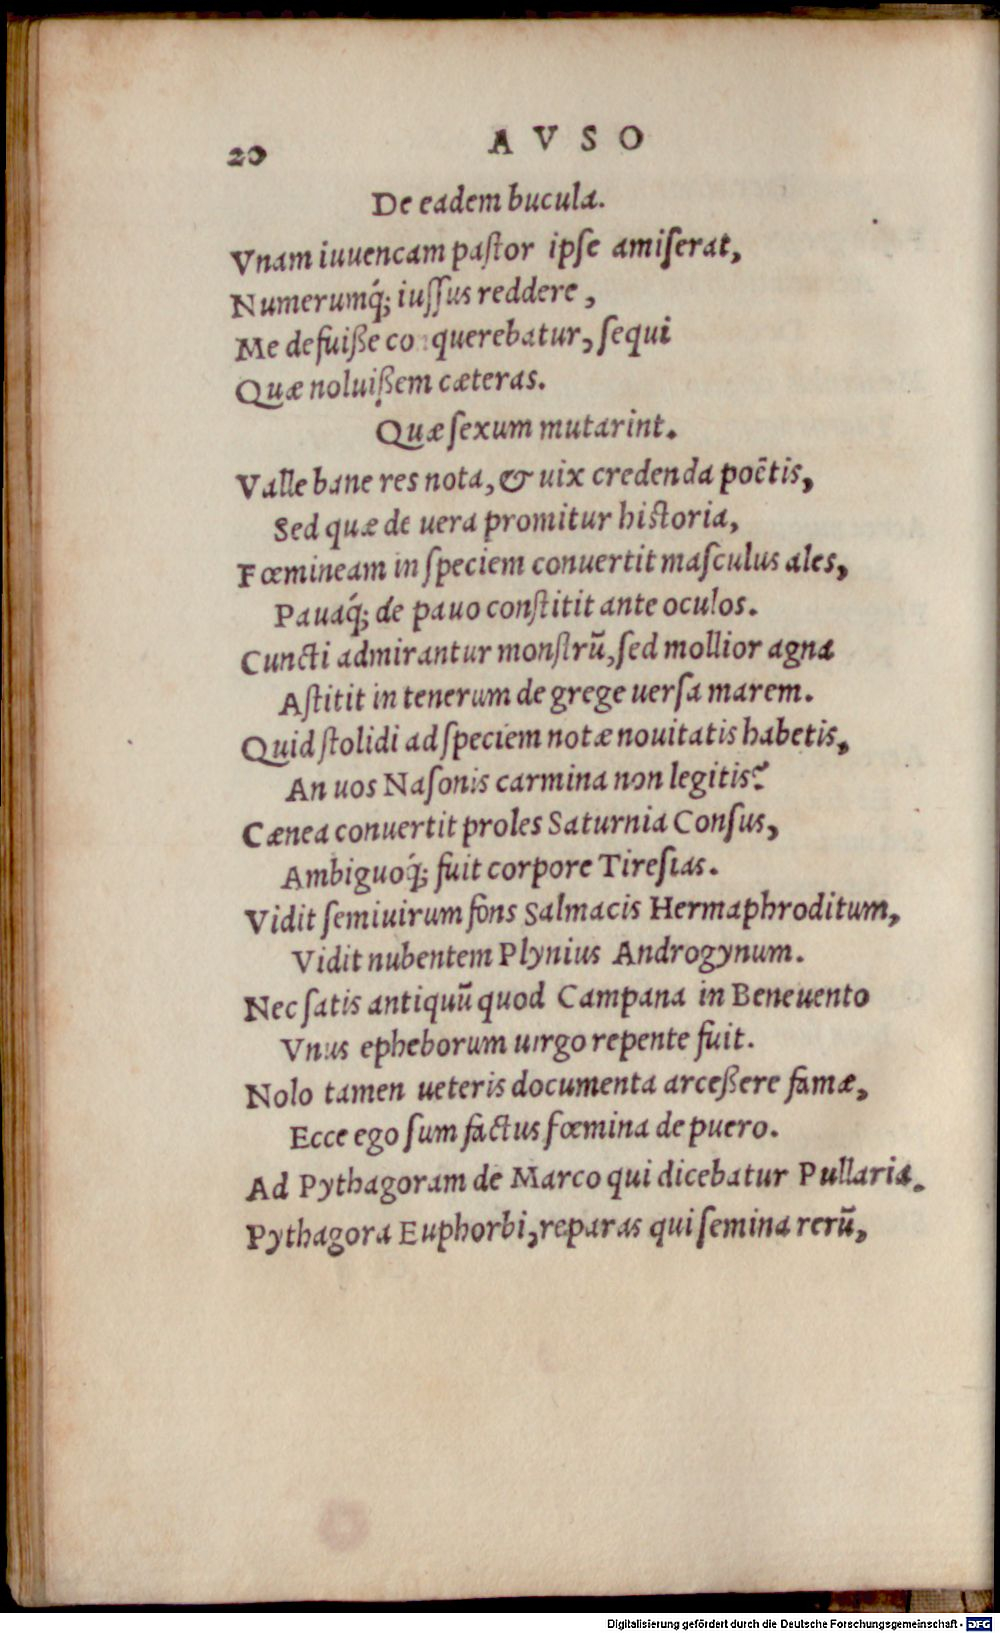 20 AVSO
De eadem bucula.
Vnam iuuencam pastor ipse amiserat,
Numerumq́; iussus reddere,
Me defuiße conquerebatur, sequi
Quæ noluißem cæteras.
Quæ sexum mutarint.
Valle bane res nota, & uix credenda poētis,
Sed quæ de uera promitur historia,
Fœmineam in speciem conuertit masculus ales,
Pauaq́; de pauo constitit ante oculos.
Cuncti admirantur monstrū, sed mollior agna
Astitit in tenerum de grege uersa marem.
Quid stolidi ad speciem notæ nouitatis habetis,
An uos Nasonis carmina non legitis?
Cænea conuertit proles Saturnia Consus,
Ambiguoq́; fuit corpore Tiresias.
Vidit semiuirum fons Salmacis Hermaphroditum,
Vidit nubentem Plynius Androgynum.
Nec satis antiquū quod Campana in Beneuento
Vnus epheborum uirgo repente fuit.
Nolo tamen ueteris documenta arceßere famæ,
Ecce ego sum factus fœmina de puero.
Ad Pythagoram de Marco qui dicebatur Pullaria.
Pythagora Euphorbi, reparas qui semina rerū,
Digitalisierung gefördert durch die Deutsche Forschungsgemeinschaft - DFG